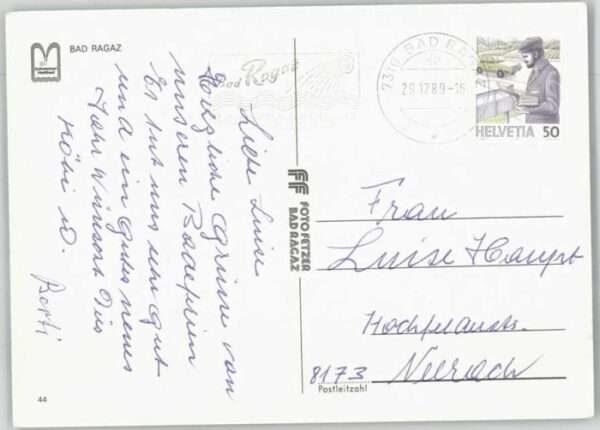 BAD RAGAZ
Liebe Luise
Herzliche Grüsse von
unseren Badeferien
Es tut uns sehr gut
und ein gutes neues
Jahr wünscht Dir
Köbi u.
Berti
44
FF FOTO FETZER
BAD RAGAZ
Bad Ragaz
7310 BAD RAGAZ
29.12.89-16
HELVETIA 50
Frau
Luise Haupt
8173 Neerach
Postleitzahl